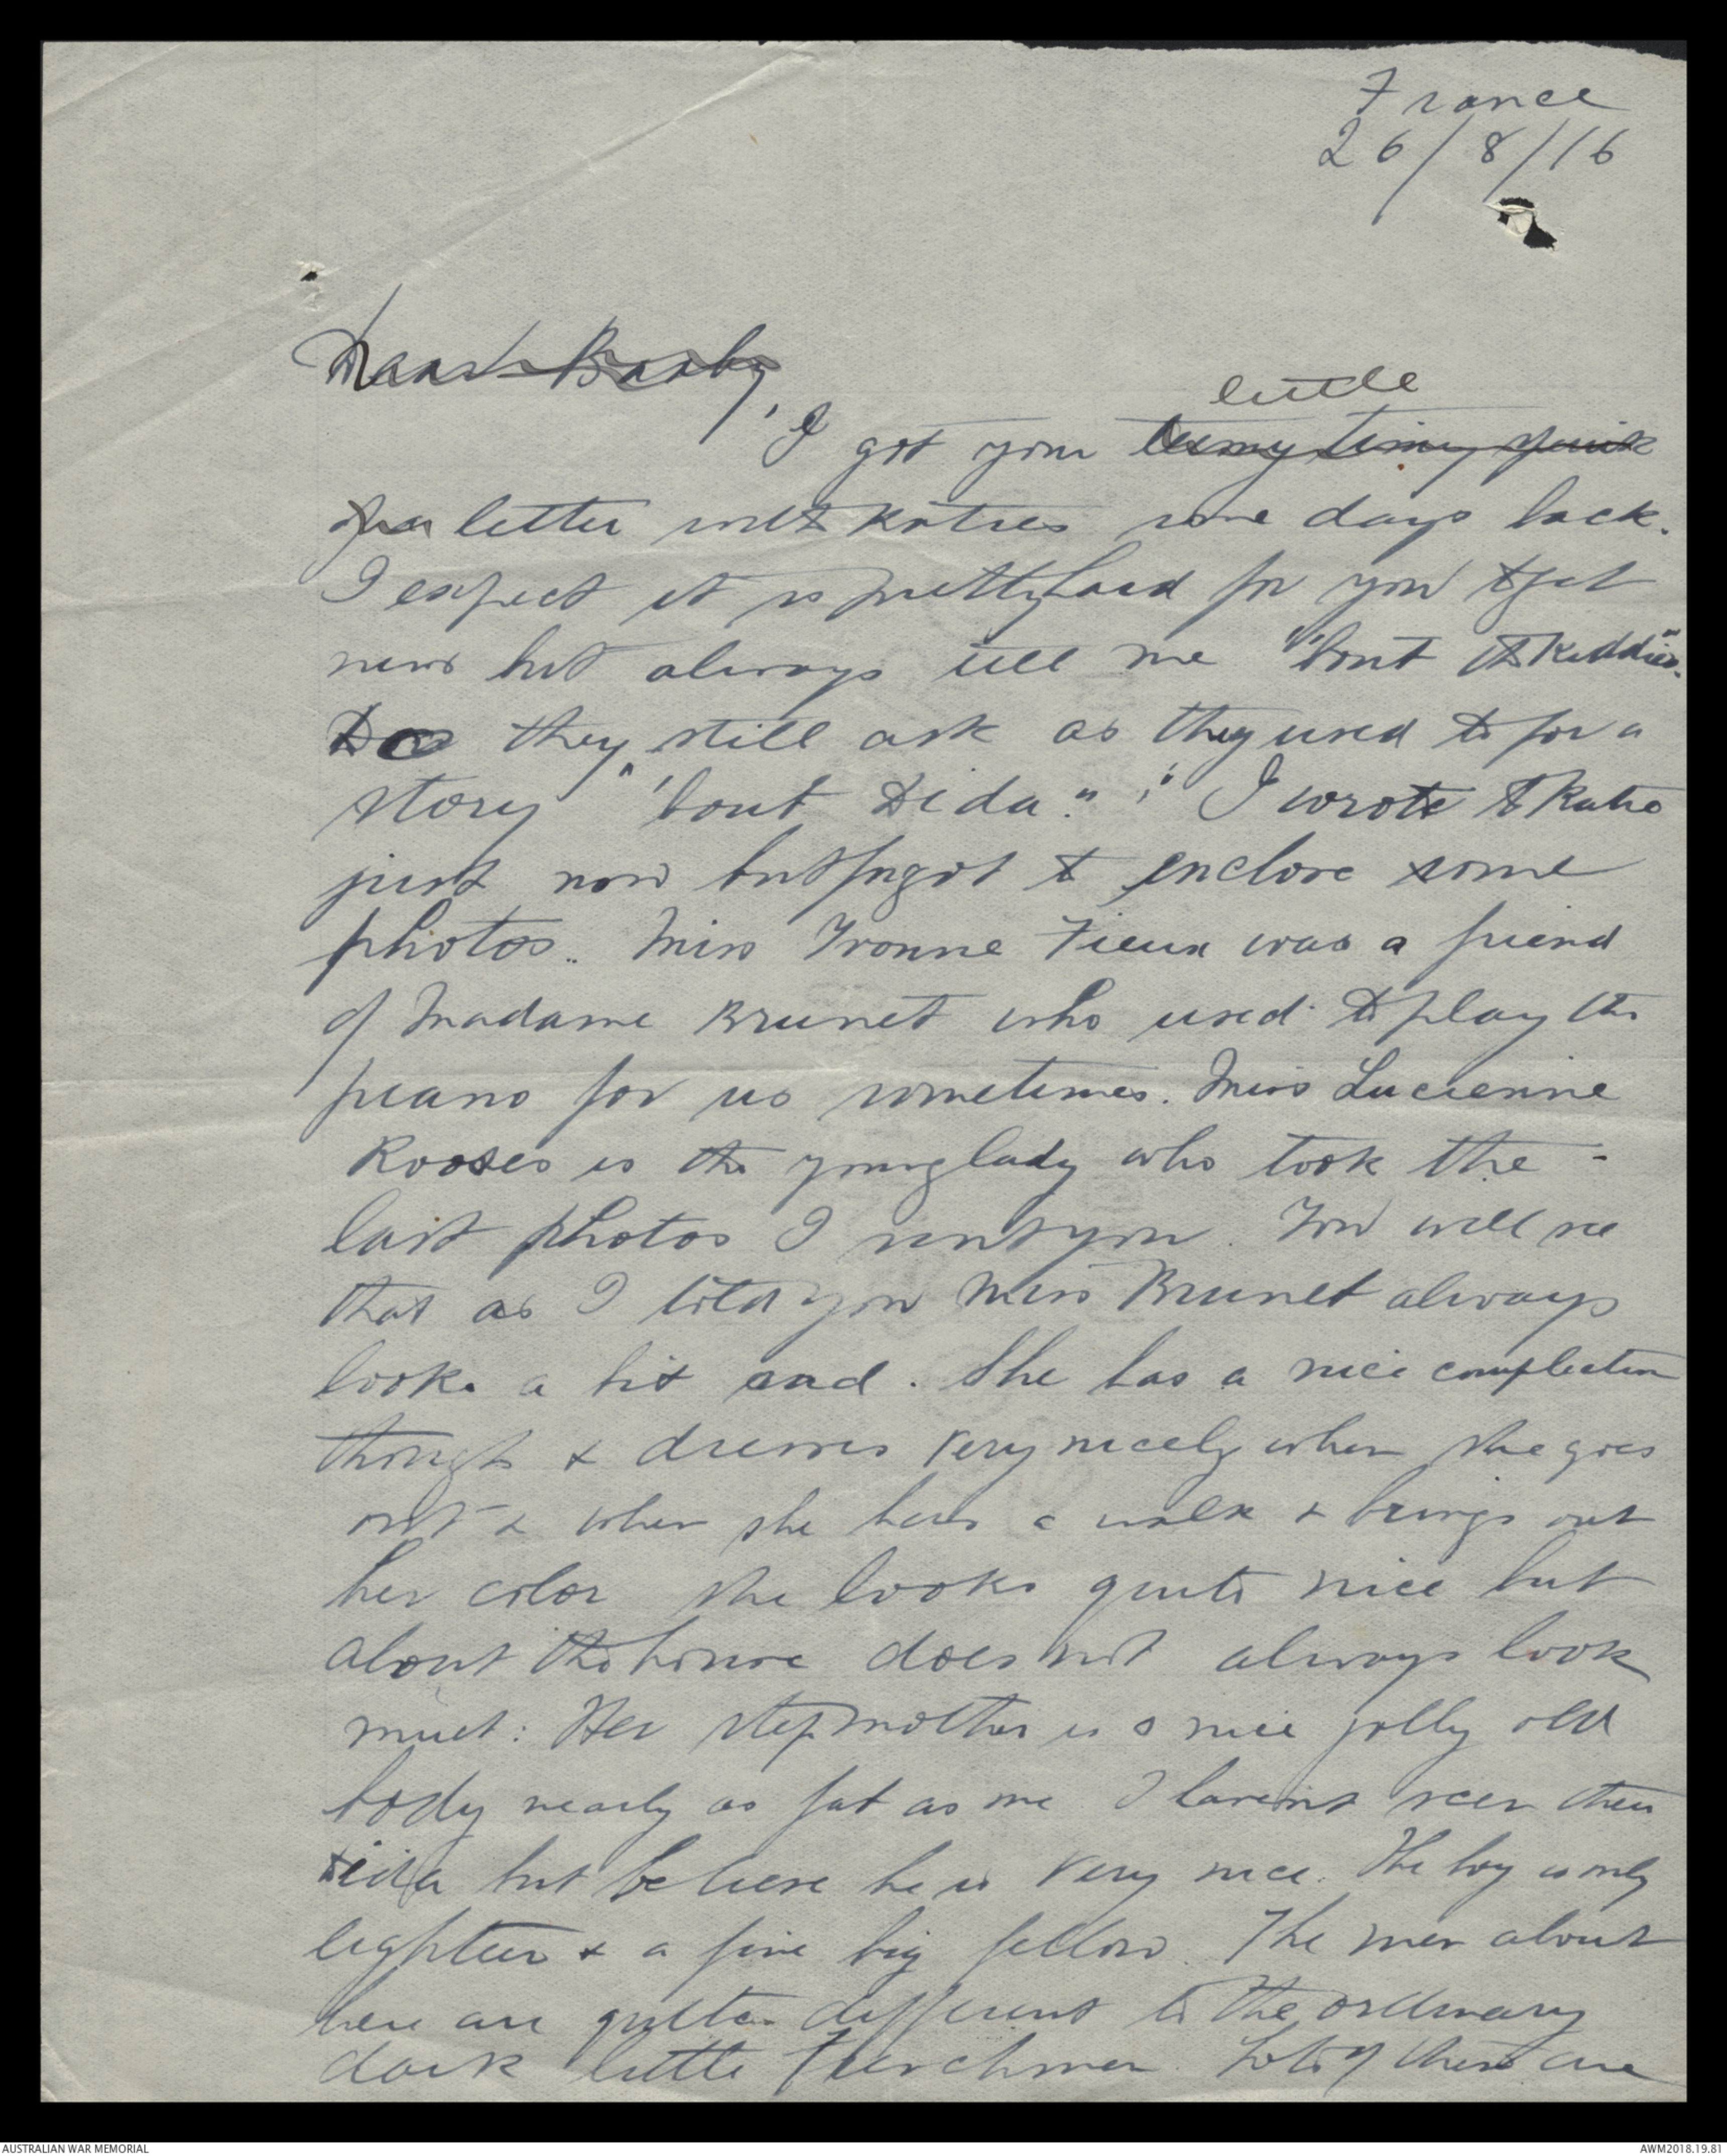 France
26/8/16
little
I got your teeny tiny quick
of a letter with Katies some days back.
I expect it is pretty hard for you to get
news but always tell me "'bout the kiddies".
Do they still ask as they used to for a
story "'bout Dida." I wrote to Katie
just now but forgot to enclose some
photos.. Miss Yvonne Fieux was a friend
of Madame Brunet who used to play the
piano for us sometimes. Miss Lucienne
Rooses is the young lady who took the -
last photos I sent you. You will see
that as I told you Miss Brunet always
looks a bit sad. She has a nice complection
though & dresses very nicely when she goes
out & when she has a walk & brings out
her color she looks quite nice but
about the house does not always look
much: Her stepmother is a nice jolly old
body nearly as fat as me I havent seen their
Dida but believe he is very nice. The boy is only
eighteen & a fine big fellow. The men about
here are quite different to the ordinary
dark little Frenchmen. Lots of them are
AUSTRALIAN WAR MEMORIAL
AWM2018.19.81